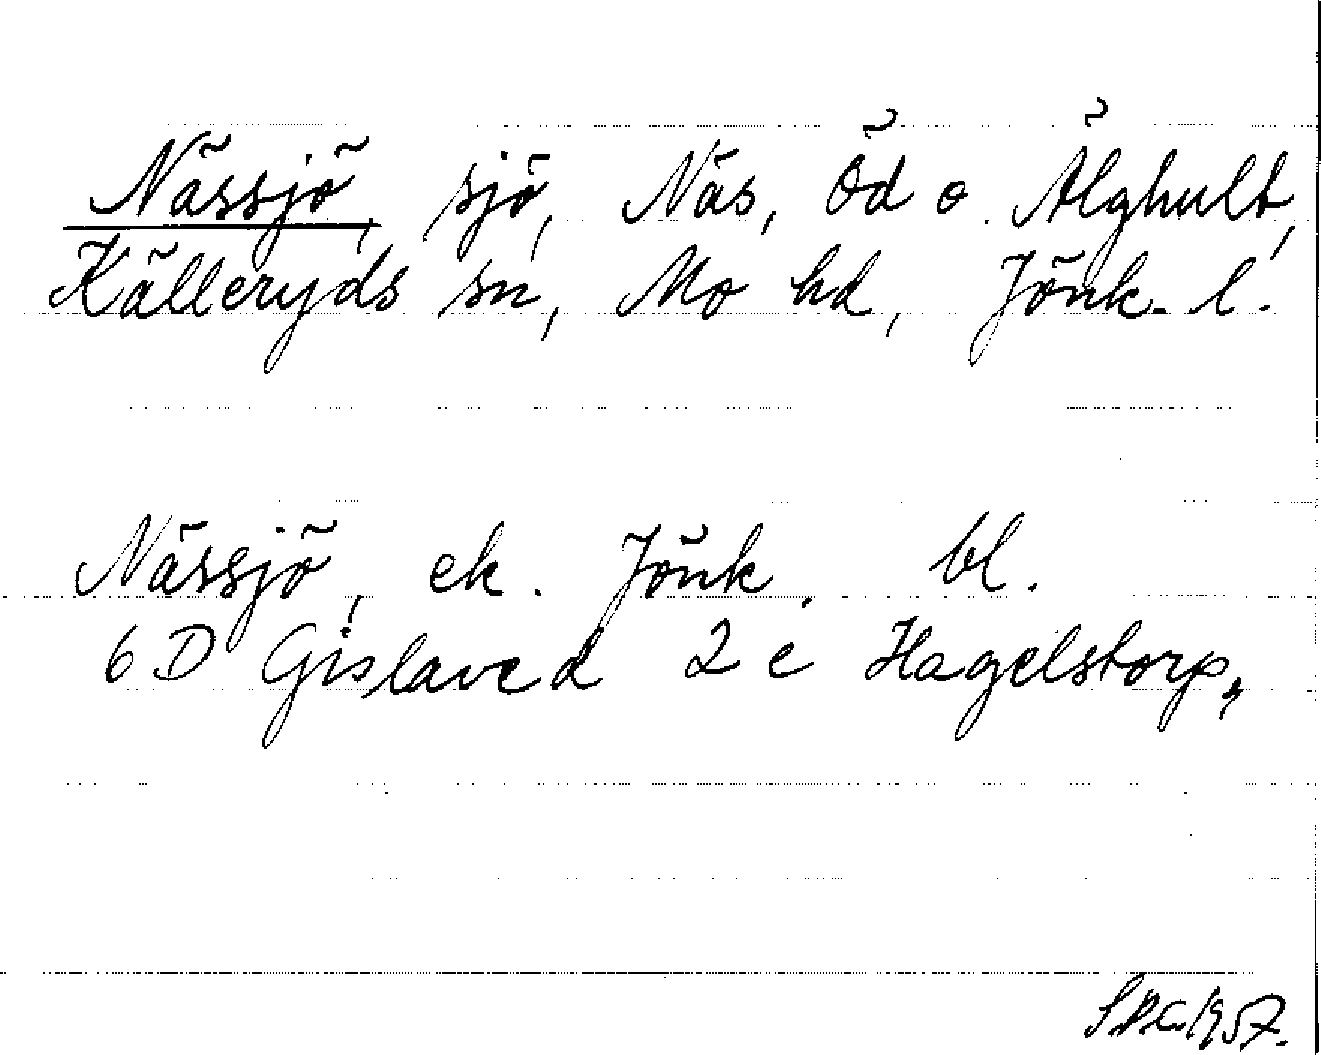 Nässjö, sjö, Näs, Öd o. Älghult,
Källeryds sn, Mo hd, Jönk. l.
Nässjö, ek. Jönk. bl.
6 D Gislaved 2 e Hagelstorp,
1957.